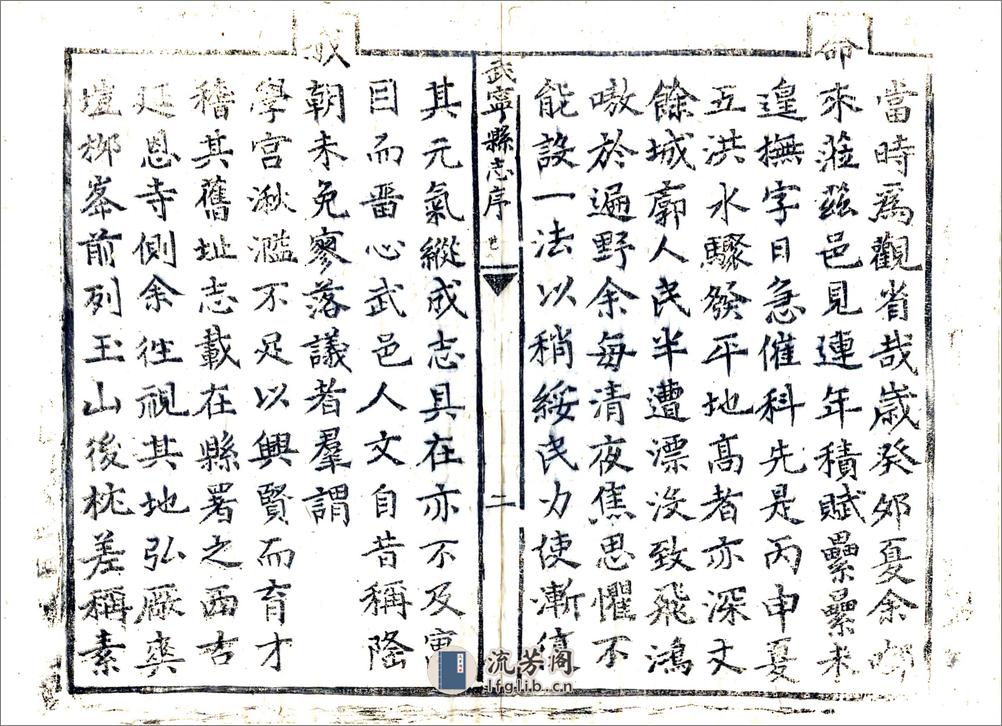 當時爲觀省哉歲癸卯夏余
命
來蒞茲邑見連年積賦纍纍未
遑撫字日急催科先是丙申夏
五洪水驟發平地高者亦深丈
餘城廓人民半遭漂沒致飛鴻
嗷於遍野余每清夜焦思懼不
能設一法以稍綏民力使漸
武寧縣志序
二
其元氣縱成志具在亦不及寓
目而畱心武邑人文自昔稱隆
我
朝未免寥落議者羣謂
學宮湫濫不足以興賢而育才
稽其舊址志載在縣署之西古
延恩寺側余徃視其地弘厰奕
塏柳峯前列玉山後枕差稱素
流芳阁
lfglib.cn